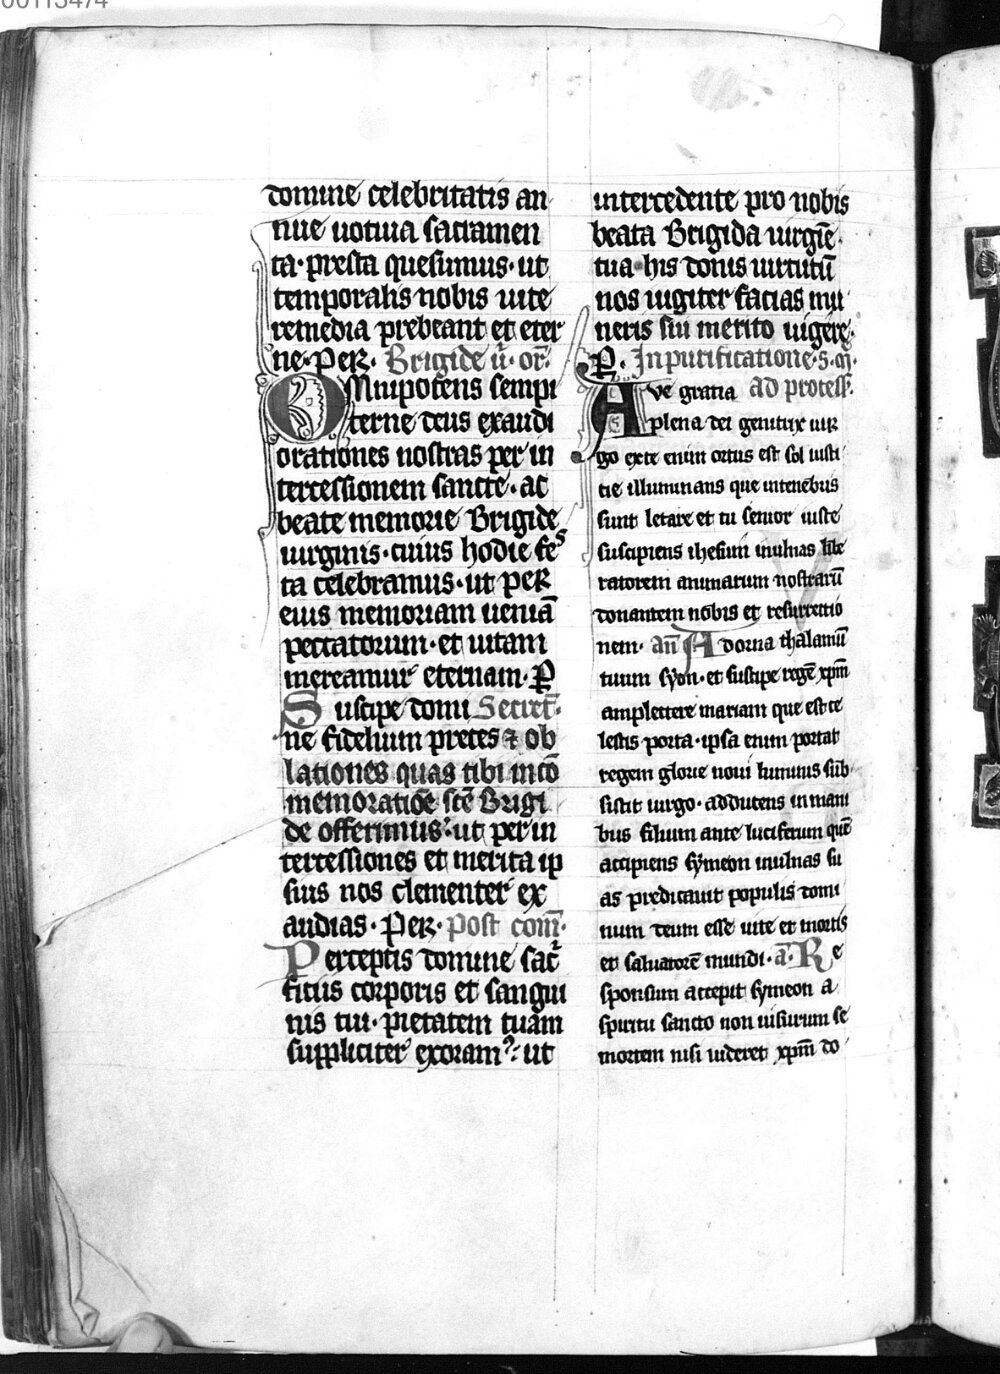 00113474
domine celebritatis an
nue uotiua sacramen
ta· presta quesumus· ut
temporalis nobis uite
remedia prebeant et eter
ne· Per· Brigide ū· or̄·
OMnipotens sempi
terne deus exaudi
orationes nostras per in
tercessionem sancte· ac
beate memorie Brigide
uirginis· cuius hodie fes
ta celebramus· ut per
eius memoriam ueniā
peccatorum· et uitam
mereamur eternam· P
Suscipe domi Secret̄·
ne fidelium preces ⁊ ob
lationes quas tibi in cō
memoratiōe scē Brigi
de offerimus· ut per in
tercessiones et merita ip
sius nos clementer ex
audias· Per· post com̄·
Perceptis domine sac̄
ficiis corporis et sangui
nis tui· pietatem tuam
suppliciter exoram᷒· ut
intercedente pro nobis
beata Brigida uirgīe
tua his donis uirtutū
nos iugiter facias mu
neris sui merito uigere·
P. In purificatione· s· m̄·
AVe gratia ad process̄·
plena dei genitrix uir
go ex te enim ortus est sol iusti
cie illuminans que in tenebris
sunt letare et tu senior iuste
suscipiens ihesum in ulnas libe
ratorem animarum nostrarū
donantem nobis et resurrectio
nem· an̄ Adorna thalamū
tuum syon· et suscipe regē xp̄m
amplectere mariam que est ce
lestis porta· ipsa enim portat
regem glorie noui luminis sub
sistit uirgo· adducens in mani
bus filium ante luciferum quē
accipiens symeon in ulnas su
as predicauit populis domi
num deum esse uite et mortis
et saluatorē mundi· a̅· Re
sponsum accepit symeon a
spiritu sancto non uisurum se
mortem nisi uideret xp̄m do